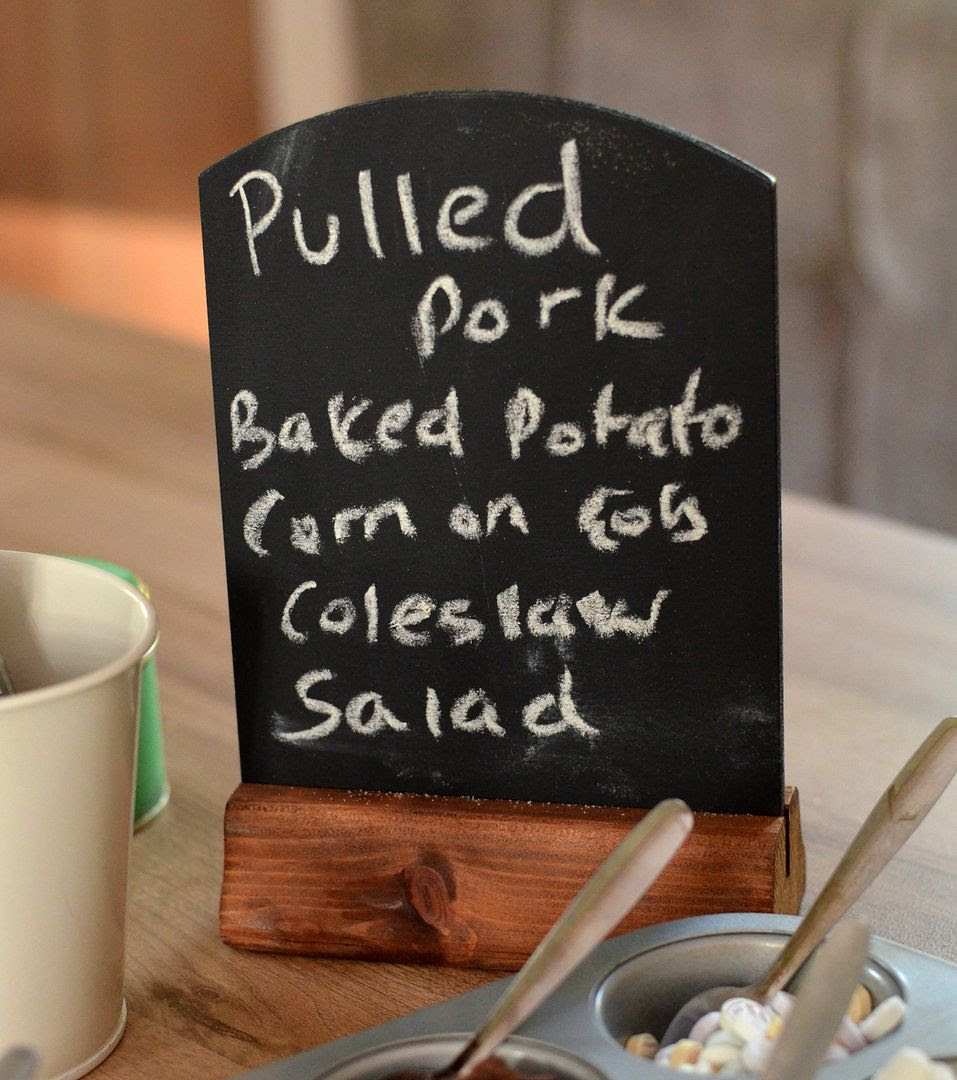 Pulled
Pork
Baked Potato
Corn on Cob
Coleslaw
Salad